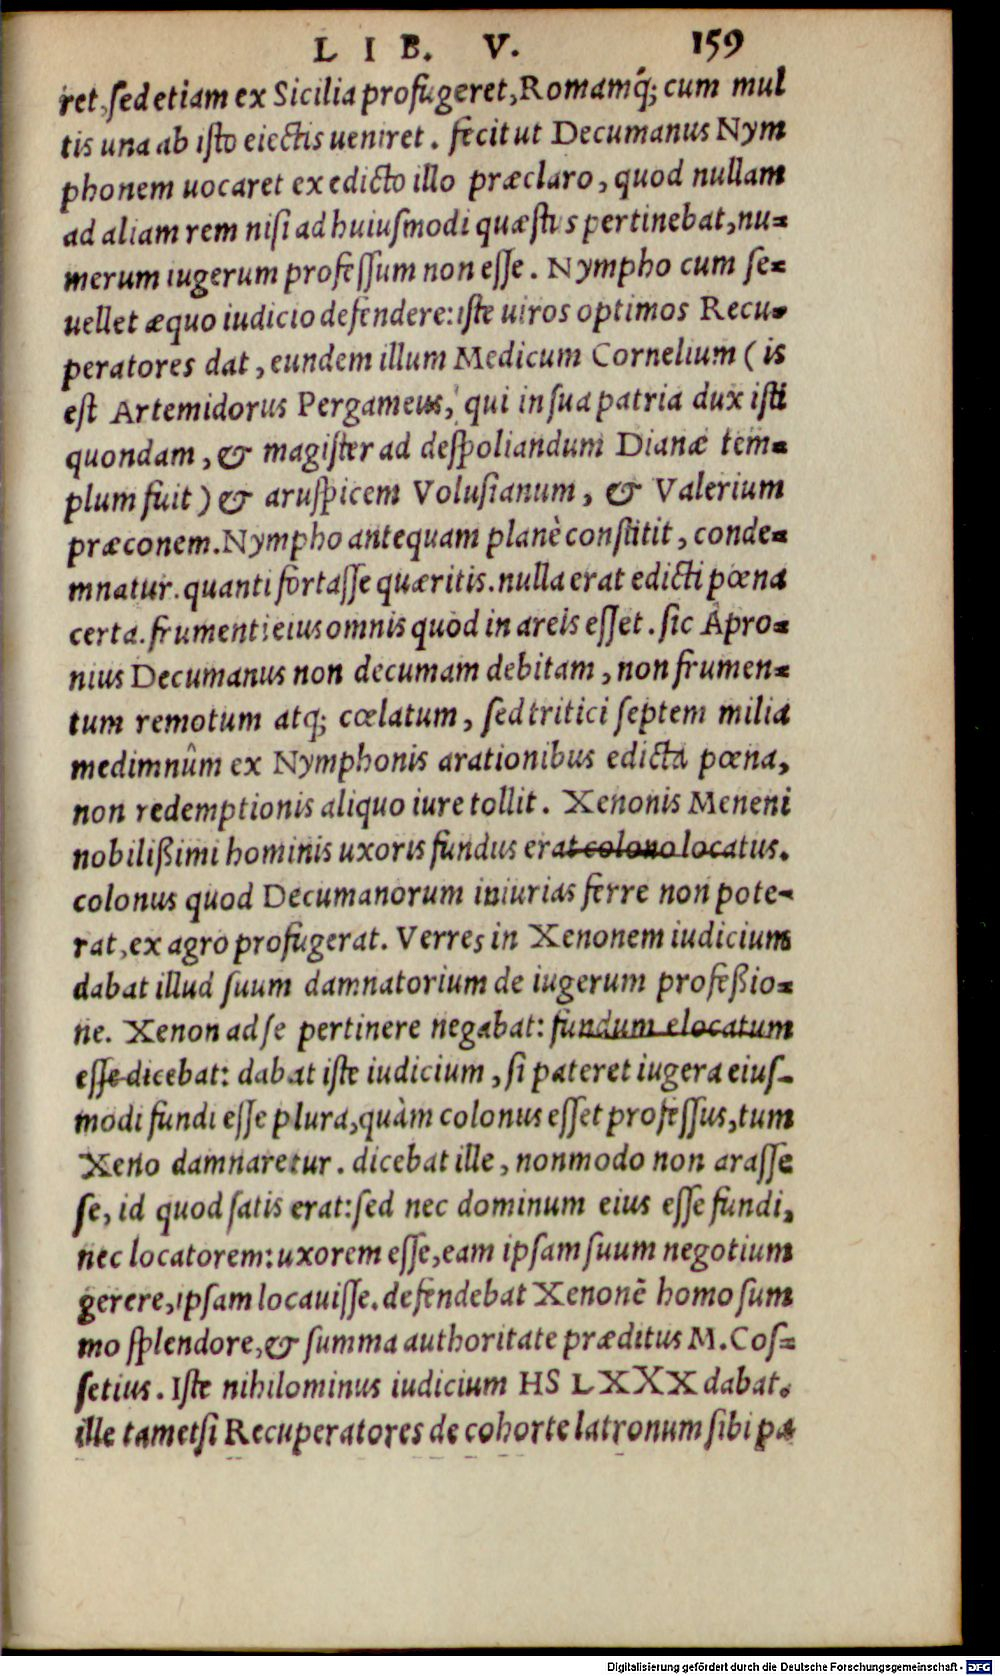 LIB. V. 159
ret, sed etiam ex Sicilia profugeret, Romamq́; cum mul
tis una ab isto eiectis ueniret. fecit ut Decumanus Nym
phonem uocaret ex edicto illo præclaro, quod nullam
ad aliam rem nisi ad huiusmodi quæstus pertinebat, nu-
merum iugerum professum non esse. Nympho cum se-
uellet æquo iudicio defendere: iste uiros optimos Recu-
peratores dat, eundem illum Medicum Cornelium (is
est Artemidorus Pergameus, qui in sua patria dux isti
quondam, & magister ad despoliandum Dianæ tem-
plum fuit) & aruspicem Volusianum, & Valerium
præconem. Nympho antequam planè constitit, conde-
mnatur. quanti fortasse quæritis. nulla erat edicti pœna
certa. frumenti eius omnis quòd in areis esset. sic Apro-
nius Decumanus non decumam debitam, non frumen-
tum remotum atq; cœlatum, sed tritici septem milia
medimnûm ex Nymphonis arationibus edicta pœna,
non redemptionis aliquo iure tollit. Xenonis Meneni
nobilißimi hominis uxoris fundus erat colono locatus.
colonus quod Decumanorum iniurias ferre non pote-
rat, ex agro profugerat. Verres in Xenonem iudicium
dabat illud suum damnatorium de iugerum profeßio-
ne. Xenon ad se pertinere negabat: fundum elocatum
esse dicebat: dabat iste iudicium, si pateret iugera eius-
modi fundi esse plura, quàm colonus esset professus, tum
Xeno damnaretur. dicebat ille, nonmodo non arasse
se, id quod satis erat: sed nec dominum eius esse fundi,
nec locatorem: uxorem esse, eam ipsam suum negotium
gerere, ipsam locauisse. defendebat Xenonē homo sum
mo splendore, & summa authoritate præditus M. Cos-
setius. Iste nihilominus iudicium HS LXXX dabat.
ille tametsi Recuperatores de cohorte latronum sibi pa
Digitalisierung gefördert durch die Deutsche Forschungsgemeinschaft - DFG